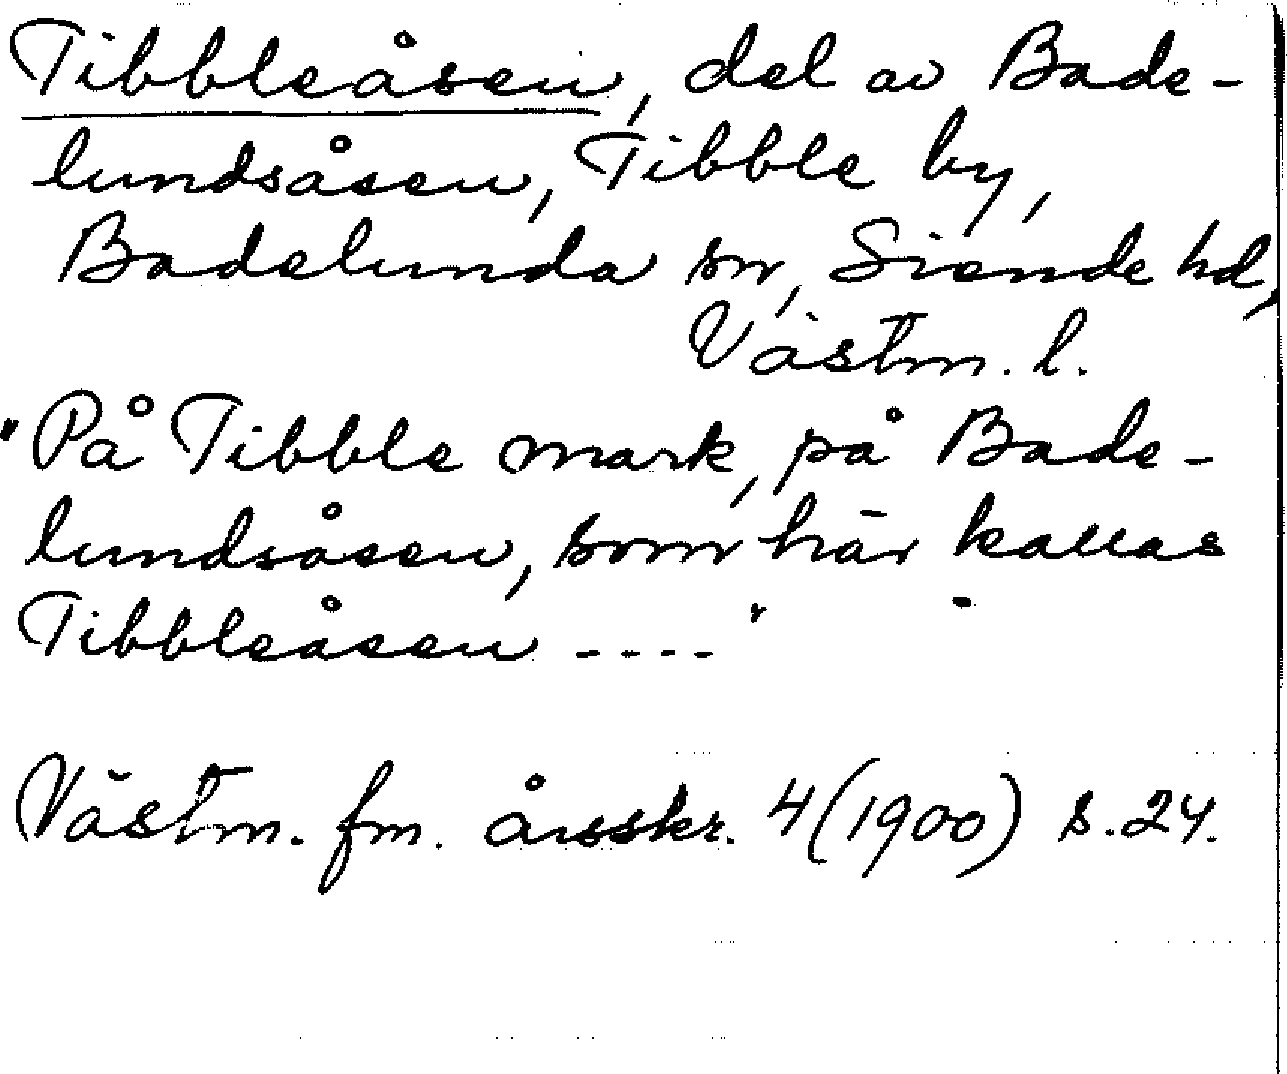 Tibbleåsen, del av Bade-
lundsåsen, Tibble by,
Badelunda sn, Siende hd,
Västm. l.
"På Tibble mark, på Bade-
lundsåsen, som här kallas
Tibbleåsen ----"
Västm. fm. årsskr. 4 (1900) s. 24.